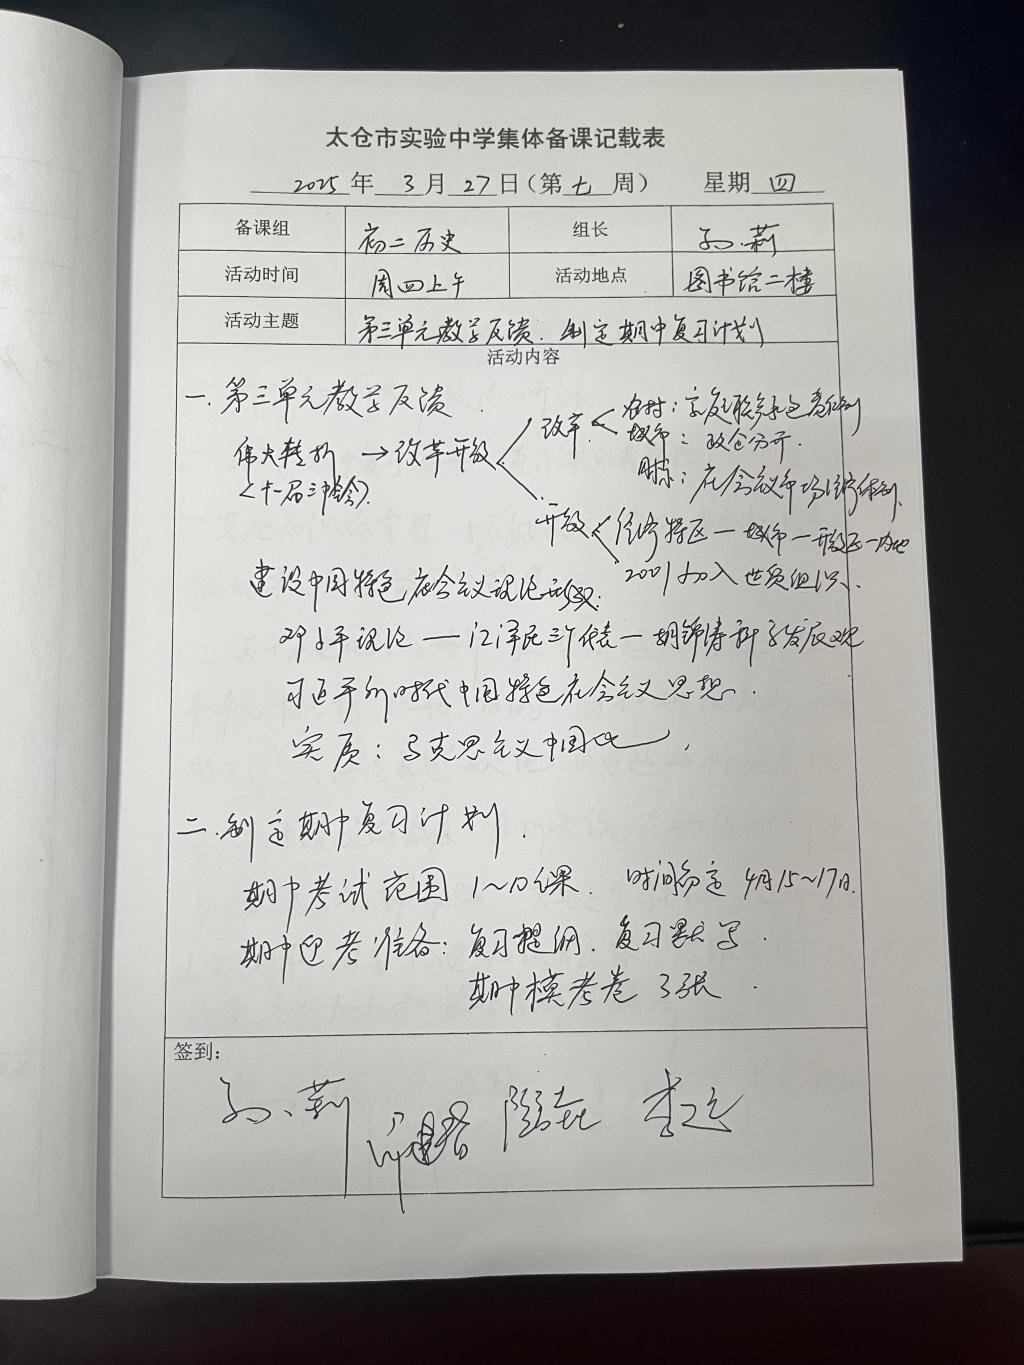 太仓市实验中学集体备课记载表
2025年 3月 27日(第七周) 星期四
备课组 初二历史 组长 孙莉
活动时间 周四上午 活动地点 图书馆二楼
活动主题 第三单元教学反馈、制定期中复习计划
活动内容
一、第三单元教学反馈.
农村:家庭联产承包责任制
改革. 城市:政企分开.
伟大转折 → 改革开放
<十一届三中全会>.
目标:社会主义市场经济体制.
开放 经济特区一城市一开放区一内地
2001加入世贸组织.
建设中国特色社会主义理论形成:
邓小平理论 — 江泽民三个代表 — 胡锦涛科学发展观
习近平新时代中国特色社会主义思想.
实质:马克思主义中国化.
二.制定期中复习计划.
期中考试范围 1~10课. 时间 4月15~17日.
期中迎考准备:复习提纲、复习默写.
期中模考卷 3张.
签到:
孙莉